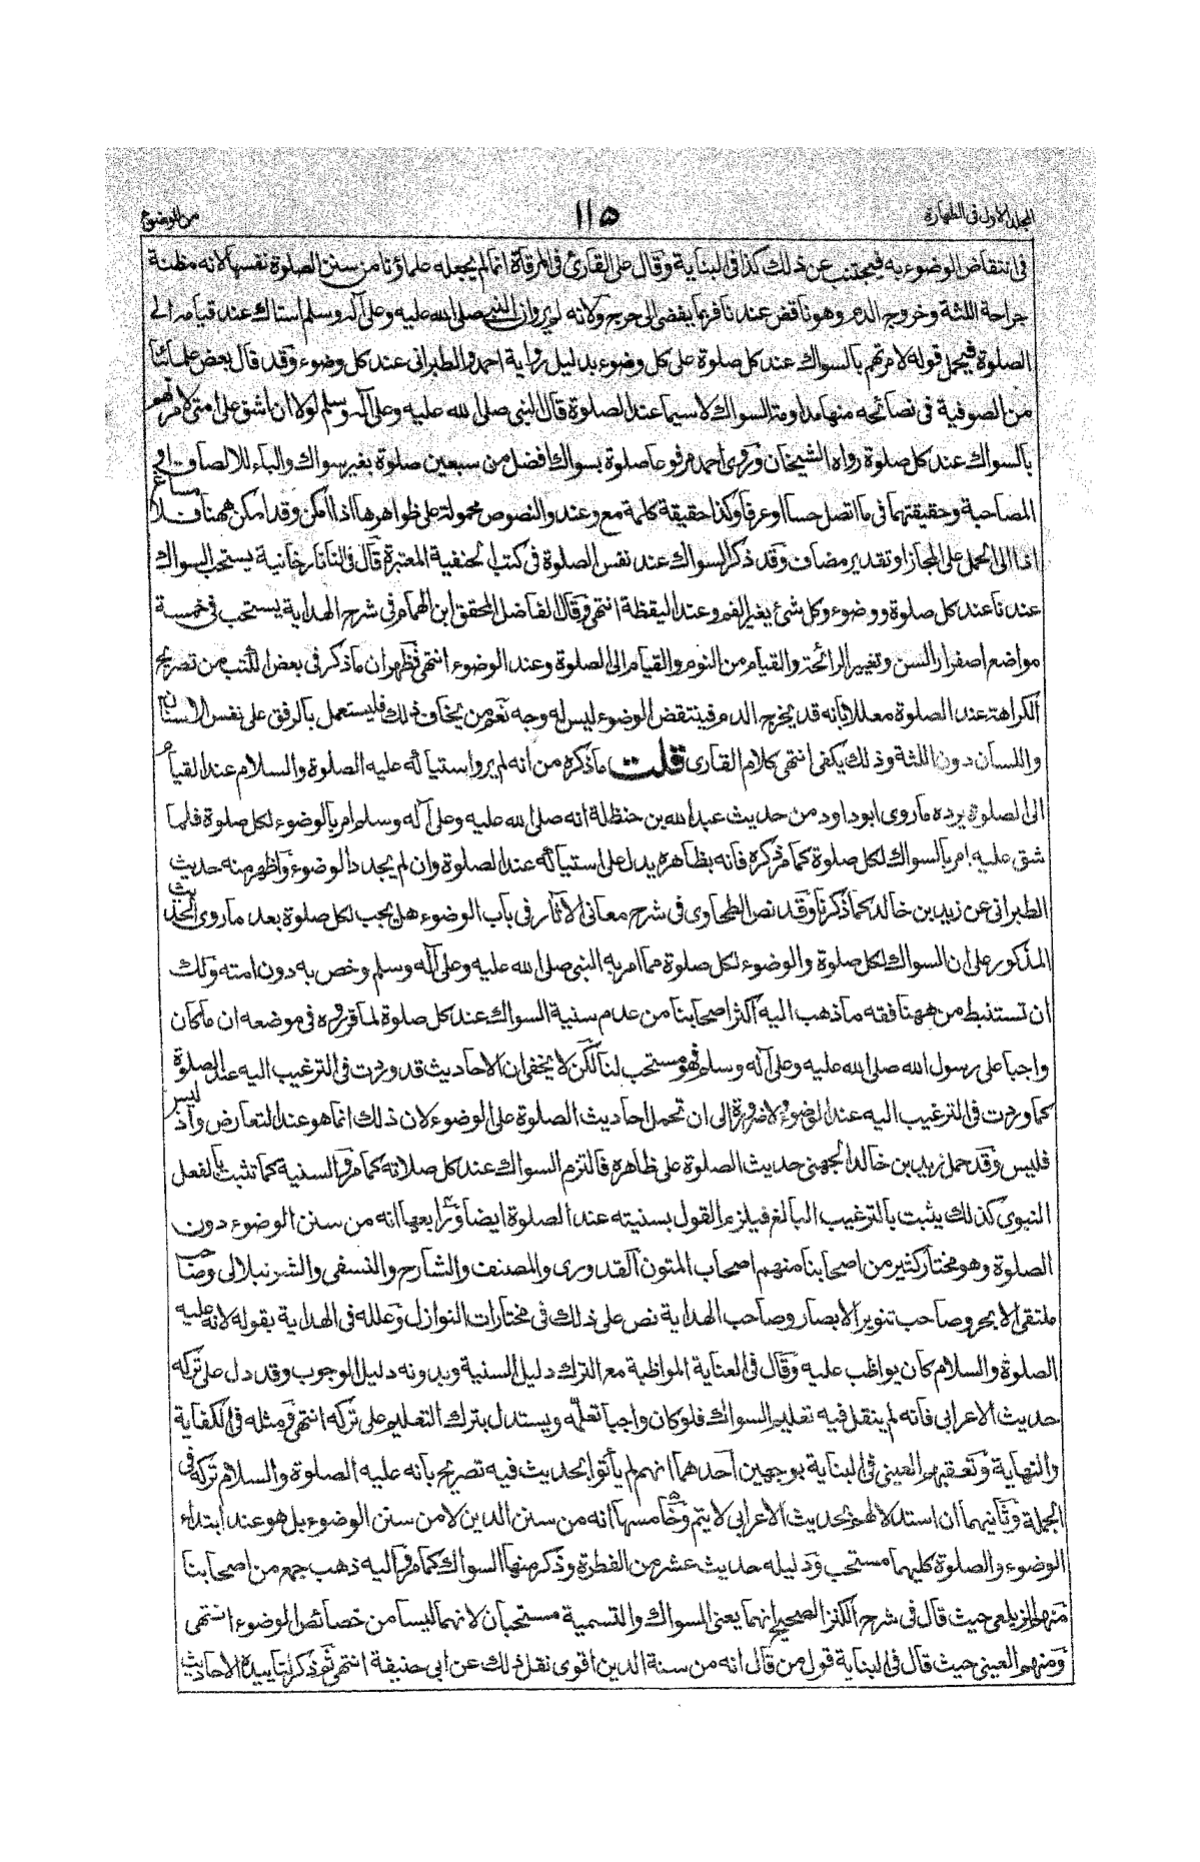 المجلد الاول فی الطهارة
١١٥
من الوضوء
فی انتقاض الوضوء به فیجتنب عن ذلك كذا فی البنایة وقال علی القاری فی المرقاة انما لم یجعله علماؤنا من سنن الصلوة نفسها لانه مظنة
جراحة اللثة وخروج الدم وهو ناقض عندنا فربما یفضی الی حرج ولانه لم یرو ان النبی صلی الله علیه وعلی آله وسلم استاك عند قیامه الی
الصلوة فیحمل قوله لامرتهم بالسواك عند كل صلوة علی كل وضوء بدلیل روایة احمد والطبرانی عند كل وضوء وقد قال بعض علمائنا
من الصوفیة فی نصائحه منها مداومة السواك لاسیما عند الصلوة قال النبی صلی الله علیه وعلی آله وسلم لولا ان اشق علی امتی لامرتهم
بالسواك عند كل صلوة رواه الشیخان وروی احمد مرفوعا صلوة بسواك افضل من سبعین صلوة بغیر سواك والباء للالصاق او
المصاحبة وحقیقتهما فی ما اتصل حسا او عرفا وكذا حقیقة كلمة مع وعند والنصوص محمولة علی ظواهرها اذا امكن وقد امكن ههنا فلا مساغ
اذا الی الحمل علی المجاز او تقدیر مضاف وقد ذكر السواك عند نفس الصلوة فی كتب الحنفیة المعتبرة قال فی التاتارخانیة یستحب السواك
عندنا عند كل صلوة ووضوء وكل شئ یغیر الفم وعند الیقظة انتهی وقال الفاضل المحقق ابن الهمام فی شرح الهدایة یستحب فی خمسة
مواضع اصفرار السن وتغییر الرائحة والقیام من النوم والقیام الی الصلوة وعند الوضوء انتهی فظهر ان ما ذكر فی بعض الكتب من تصریح
الكراهة عند الصلوة معللا بانه قد یخرج الدم فینتقض الوضوء لیس له وجه نعم من یخاف ذلك فلیستعمل بالرفق علی نفس الاسنان
واللسان دون اللثة وذلك یكفی انتهی كلام القاری قلت ما ذكره من انه لم یرو استیاكه علیه الصلوة والسلام عند القیام
الی الصلوة یرده ما روی ابوداود من حدیث عبد الله بن حنظلة انه صلی الله علیه وعلی آله وسلم امر بالوضوء لكل صلوة فلما
شق علیه امر بالسواك لكل صلوة كما مر ذكره فانه بظاهره یدل علی استیاكه عند الصلوة وان لم یجدد الوضوء واظهر منه حدیث
الطبرانی عن زید بن خالد كما ذكرنا وقد نص الطحاوی فی شرح معانی الآثار فی باب الوضوء هل یجب لكل صلوة بعد ما روی الحدیث
المذكور علی ان السواك لكل صلوة والوضوء لكل صلوة مما امر به النبی صلی الله علیه وعلی آله وسلم وخص به دون امته ولك
ان تستنبط من ههنا فقه ما ذهب الیه اكثر اصحابنا من عدم سنیة السواك عند كل صلوة لما قرروه فی موضعه ان ما كان
واجبا علی رسول الله صلی الله علیه وعلی آله وسلم فهو مستحب لنا لكن لا یخفی ان الاحادیث قد وردت فی الترغیب الیه عند الصلوة
كما وردت فی الترغیب الیه عند الوضوء ولا ضرورة الی ان تحمل احادیث الصلوة علی الوضوء لان ذلك انما هو عند التعارض واذ لیس
فلیس وقد حمل زید بن خالد الجهنی حدیث الصلوة علی ظاهره فالتزم السواك عند كل صلاته كما مر والسنیة كما تثبت بالفعل
النبوی كذلك یثبت بالترغیب البالغ فیلزم القول بسنیته عند الصلوة ایضا ورابعها انه من سنن الوضوء دون
الصلوة وهو مختار كثیر من اصحابنا منهم اصحاب المتون القدوری والمصنف والشارح والنسفی والشرنبلالی وصاحب
ملتقی الابحر وصاحب تنویر الابصار وصاحب الهدایة نص علی ذلك فی مختارات النوازل وعلله فی الهدایة بقوله لانه علیه
الصلوة والسلام كان یواظب علیه وقال فی العنایة المواظبة مع الترك دلیل السنیة وبدونه دلیل الوجوب وقد دل علی تركه
حدیث الاعرابی فانه لم ینقل فیه تعلیم السواك فلو كان واجبا لعلمه ویستدل بترك التعلیم علی تركه انتهی ومثله فی الكفایة
والنهایة وتعقبهم العینی فی البنایة بوجهین احدهما انهم لم یأتوا بحدیث فیه تصریح بانه علیه الصلوة والسلام تركه فی
الجملة وثانیهما ان استدلالهم بحدیث الاعرابی لا یتم وخامسها انه من سنن الدین لا من سنن الوضوء بل هو عند ابتداء
الوضوء والصلوة كلیهما مستحب ودلیله حدیث عشر من الفطرة وذكر منها السواك كما مر والیه ذهب جمع من اصحابنا
منهم الزیلعی حیث قال فی شرح الكنز الصحیح انهما یعنی السواك والتسمیة مستحبان لانهما لیسا من خصائص الوضوء انتهی
ومنهم العینی حیث قال فی البنایة قول من قال انه من سنة الدین اقوی نقل ذلك عن ابی حنیفة انتهی ثم ذكر لتاییده الاحادیث